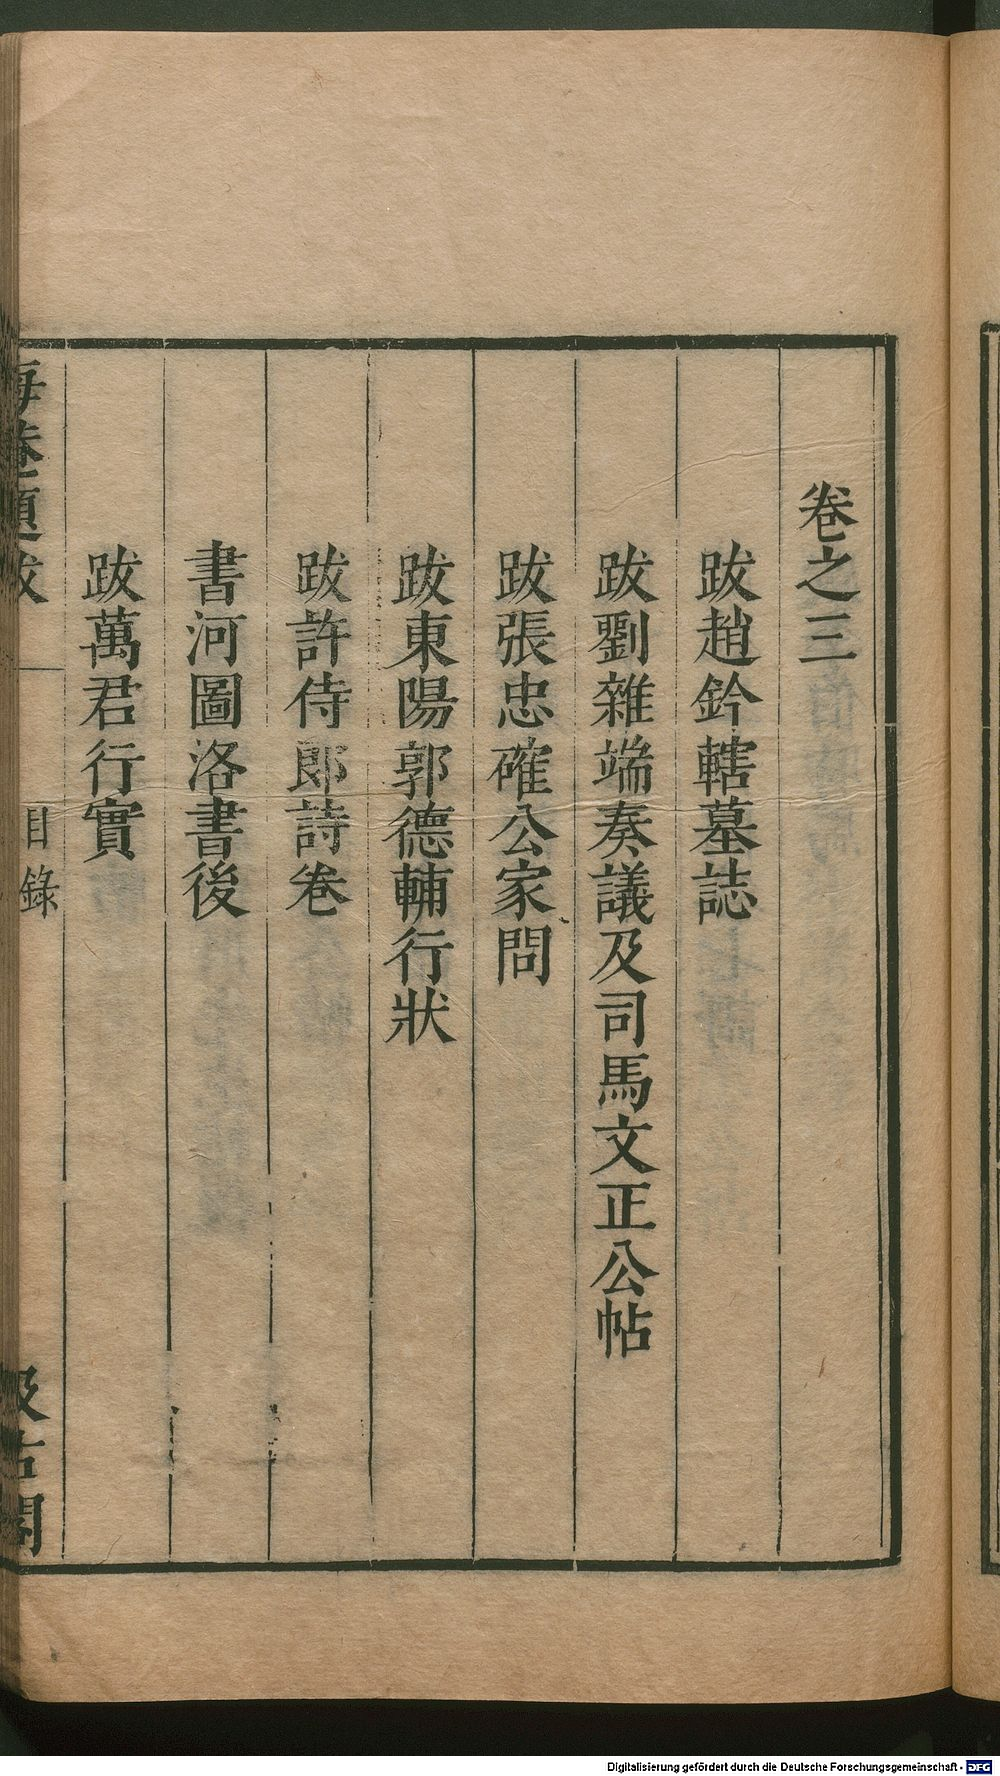 卷之三
跋趙鈐轄墓誌
跋劉雜端奏議及司馬文正公帖
跋張忠確公家問
跋東陽郭德輔行狀
跋許侍郎詩卷
書河圖洛書後
跋萬君行實
目錄
Digitalisierung gefördert durch die Deutsche Forschungsgemeinschaft - DFG